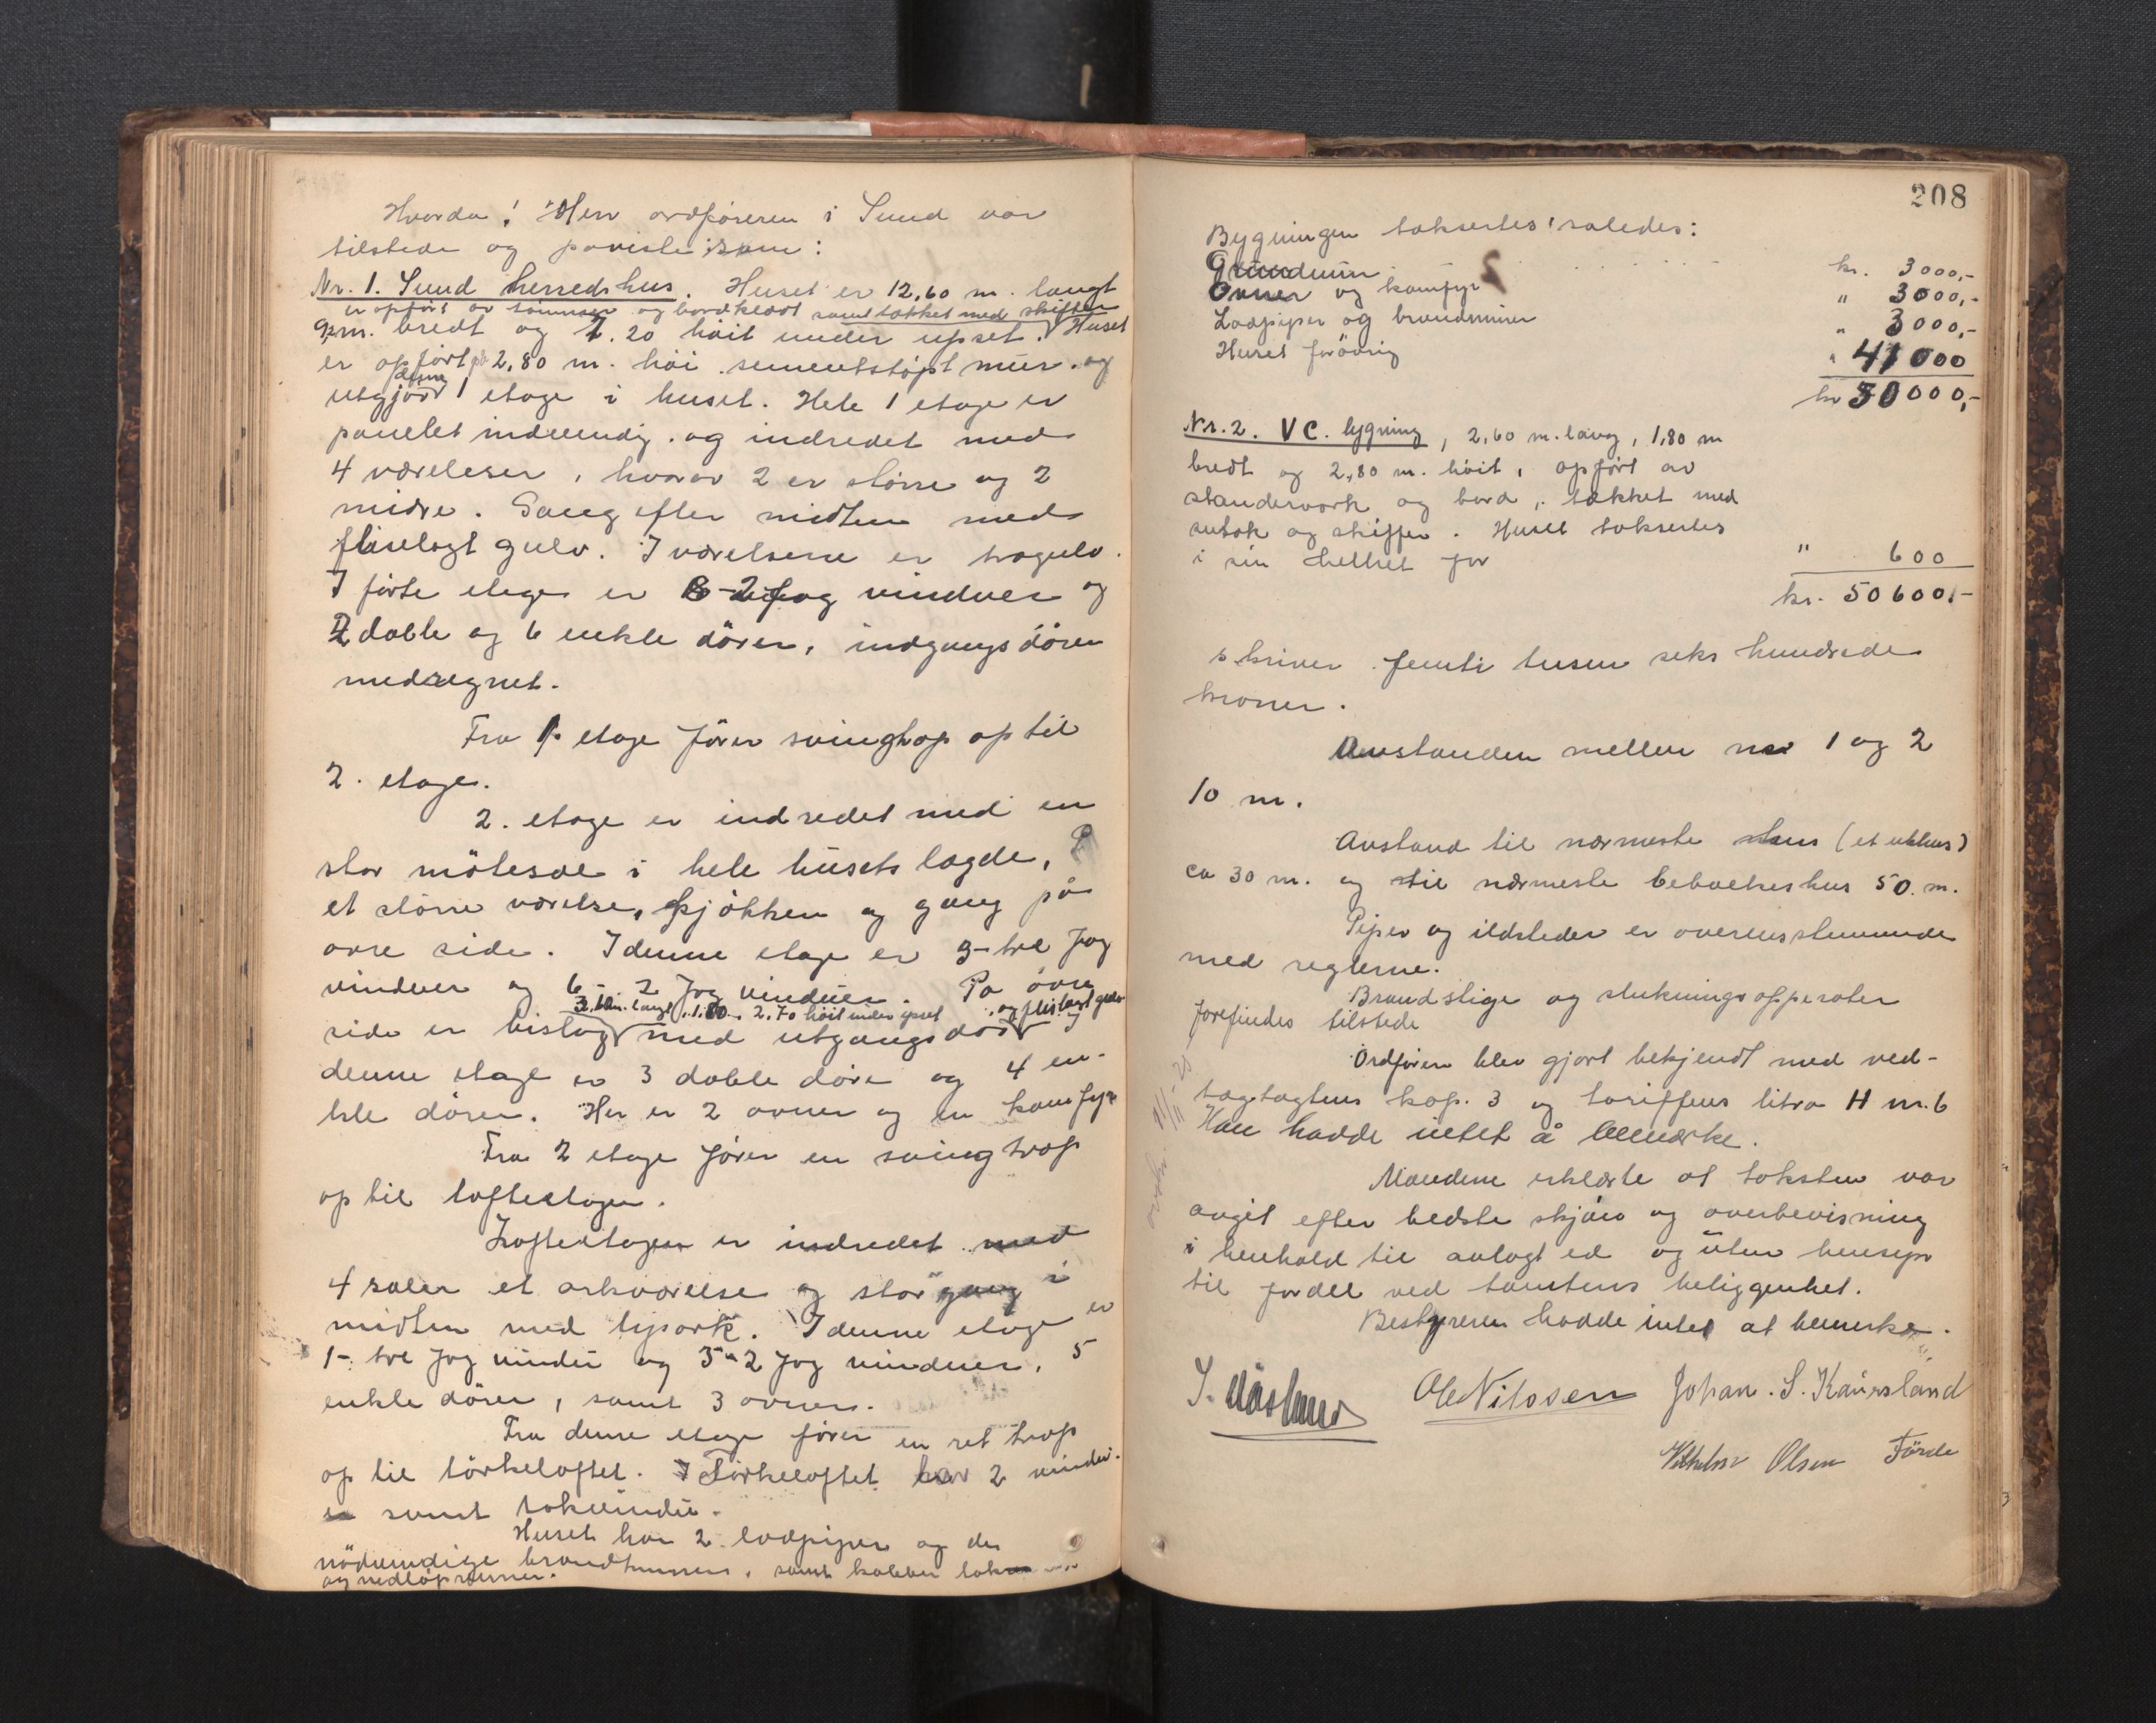 Hvorda! Herr ordføreren i Sund var
tilstede og paviste som:
Nr. 1. Sund herredshus. Huset er 12,60 m. langt
er opført av tømmer og bordklædt samt tækket med skiffer
9, m. bredt og 7.20 høit under upset. Huset
er opført på 2,80 m. høi sementstøpt mur. og
denne
utgjør 1 etage i huset. Hele 1 etage er
panelet indvendig og indredet med
4 værelser, hvorav 2 er større og 2
midre. Gang efter midten med
fliselagt gulv. I værelserne er tragulv.
I førte etage er 8-2 fag vinduer og
2 doble og 6 enkle dører, indgangsdøren
medregnet.
Fra 1. etage fører svingtrap op til
2. etage.
2. etage er indredet med en
stor møtesal i hele husets lagde,
et større værelse, kjøkken og gang på
øvre side. I denne etage er 3-tre fag
vinduer og 6-2 fag vinduer. Pa øvre
3,60m. langt, 1.80, 2,70 høit under upset og flislagt gulv
side er bislag med utgangsdør I
denne etage er 3 doble døre og 4 en-
kle dører. Her er 2 ovner og en komfyr
Fra 2 etage fører en svingtrap
op til loftetagen.
Loftetagen er indredet med
4 saler et arkværelse og stor gang i
midten med bjørk. I denne etage er
1- tre fag vindu og 3-2 fag vinduer. 5
enkle dører, samt 3 ovner.
Fra denne etage fører en ret trap
op til tørkeloftet. Tørkeloftet har 2 vindu-
er samt takvindu.
Huset har 2 lodpiper og de
nødvendige brandmurer, samt kobber tak
og nedløpsrenner.
208
Bygningen taksertes saledes:
Grundmur kr. 3000,-
Ovner og komfyr " 3000,-
Lodpiper og brandmurer " 3000,-
Huset forøvrig " 41000
kr 50000,-
Nr. 2. VC. bygning, 2,60 m. lang, 1,80 m
bredt og 2,80 m. høit, opført av
standerverk og bord, tækket med
sutak og skiffer. Huset taksertes
i sin helhet for " 600
kr. 50600,-
skriver femti tusen seks hundrede
kroner.
Avstanden mellem nr 1 og 2
10 m.
Avstand til nærmeste hus (et uthus)
ca 30 m. og til nærmeste beboelseshus 50. m.
Piper og ildsteder er overensstemmende
med reglerne.
Brandstige og slukningsapperater
forefindes tilstede
Ordføren blev gjort bekjendt med ved-
tagtagtens kap. 3 og tariffens litra H nr. 6
Han hadde intet å bemerke.
Mændene erklærte at taksten var
avgit efter bedste skjøn og overbevisning
i henhold til avlagt ed og uten hensyn
til fordel ved tomtens beliggenhet.
Bestyreren hadde intet at bemerke.
Ole Nilssen Johan. S. Kausland
Vilhelm Olsen Førde